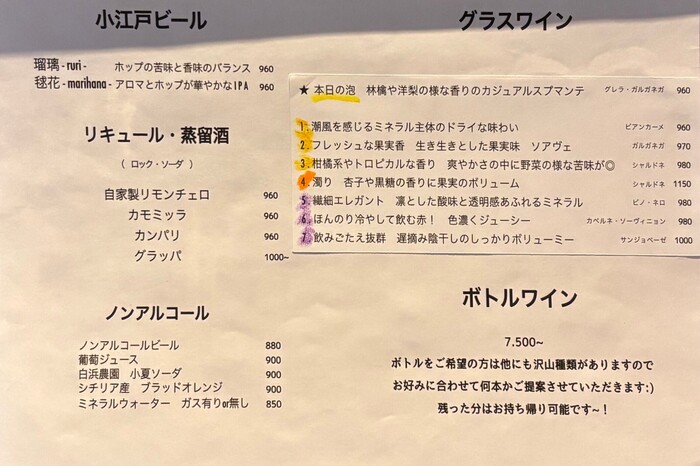 小江戸ビール
瑠璃 - ruri - ホップの苦味と香味のバランス 960
毬花 - marihana - アロマとホップが華やかなIPA 960
リキュール・蒸留酒
( ロック・ソーダ )
自家製リモンチェロ 960
カモミッラ 960
カンパリ 960
グラッパ 1000~
ノンアルコール
ノンアルコールビール 880
葡萄ジュース 900
白浜農園 小夏ソーダ 900
シチリア産 ブラッドオレンジ 900
ミネラルウォーター ガス有りor無し 850
グラスワイン
★ 本日の泡 林檎や洋梨の様な香りのカジュアルスプマンテ グレラ・ガルガネガ 960
1. 潮風を感じるミネラル主体のドライな味わい ビアンカーメ 960
2. フレッシュな果実香 生き生きとした果実味 ソアヴェ ガルガネガ 970
3. 柑橘系やトロピカルな香り 爽やかさの中に野菜の様な苦味が◎ シャルドネ 980
4. 濁り 杏子や黒糖の香りに果実のボリューム シャルドネ 1150
5. 繊細エレガント 凛とした酸味と透明感あふれるミネラル ピノ・ネロ 980
6. ほんのり冷やして飲む赤! 色濃くジューシー カベルネ・ソーヴィニョン 980
7. 飲みごたえ抜群 遅摘み陰干しのしっかりボリューミー サンジョベーゼ 1000
ボトルワイン
7.500~
ボトルをご希望の方は他にも沢山種類がありますので
お好みに合わせて何本かご提案させていただきます:)
残った分はお持ち帰り可能です~!